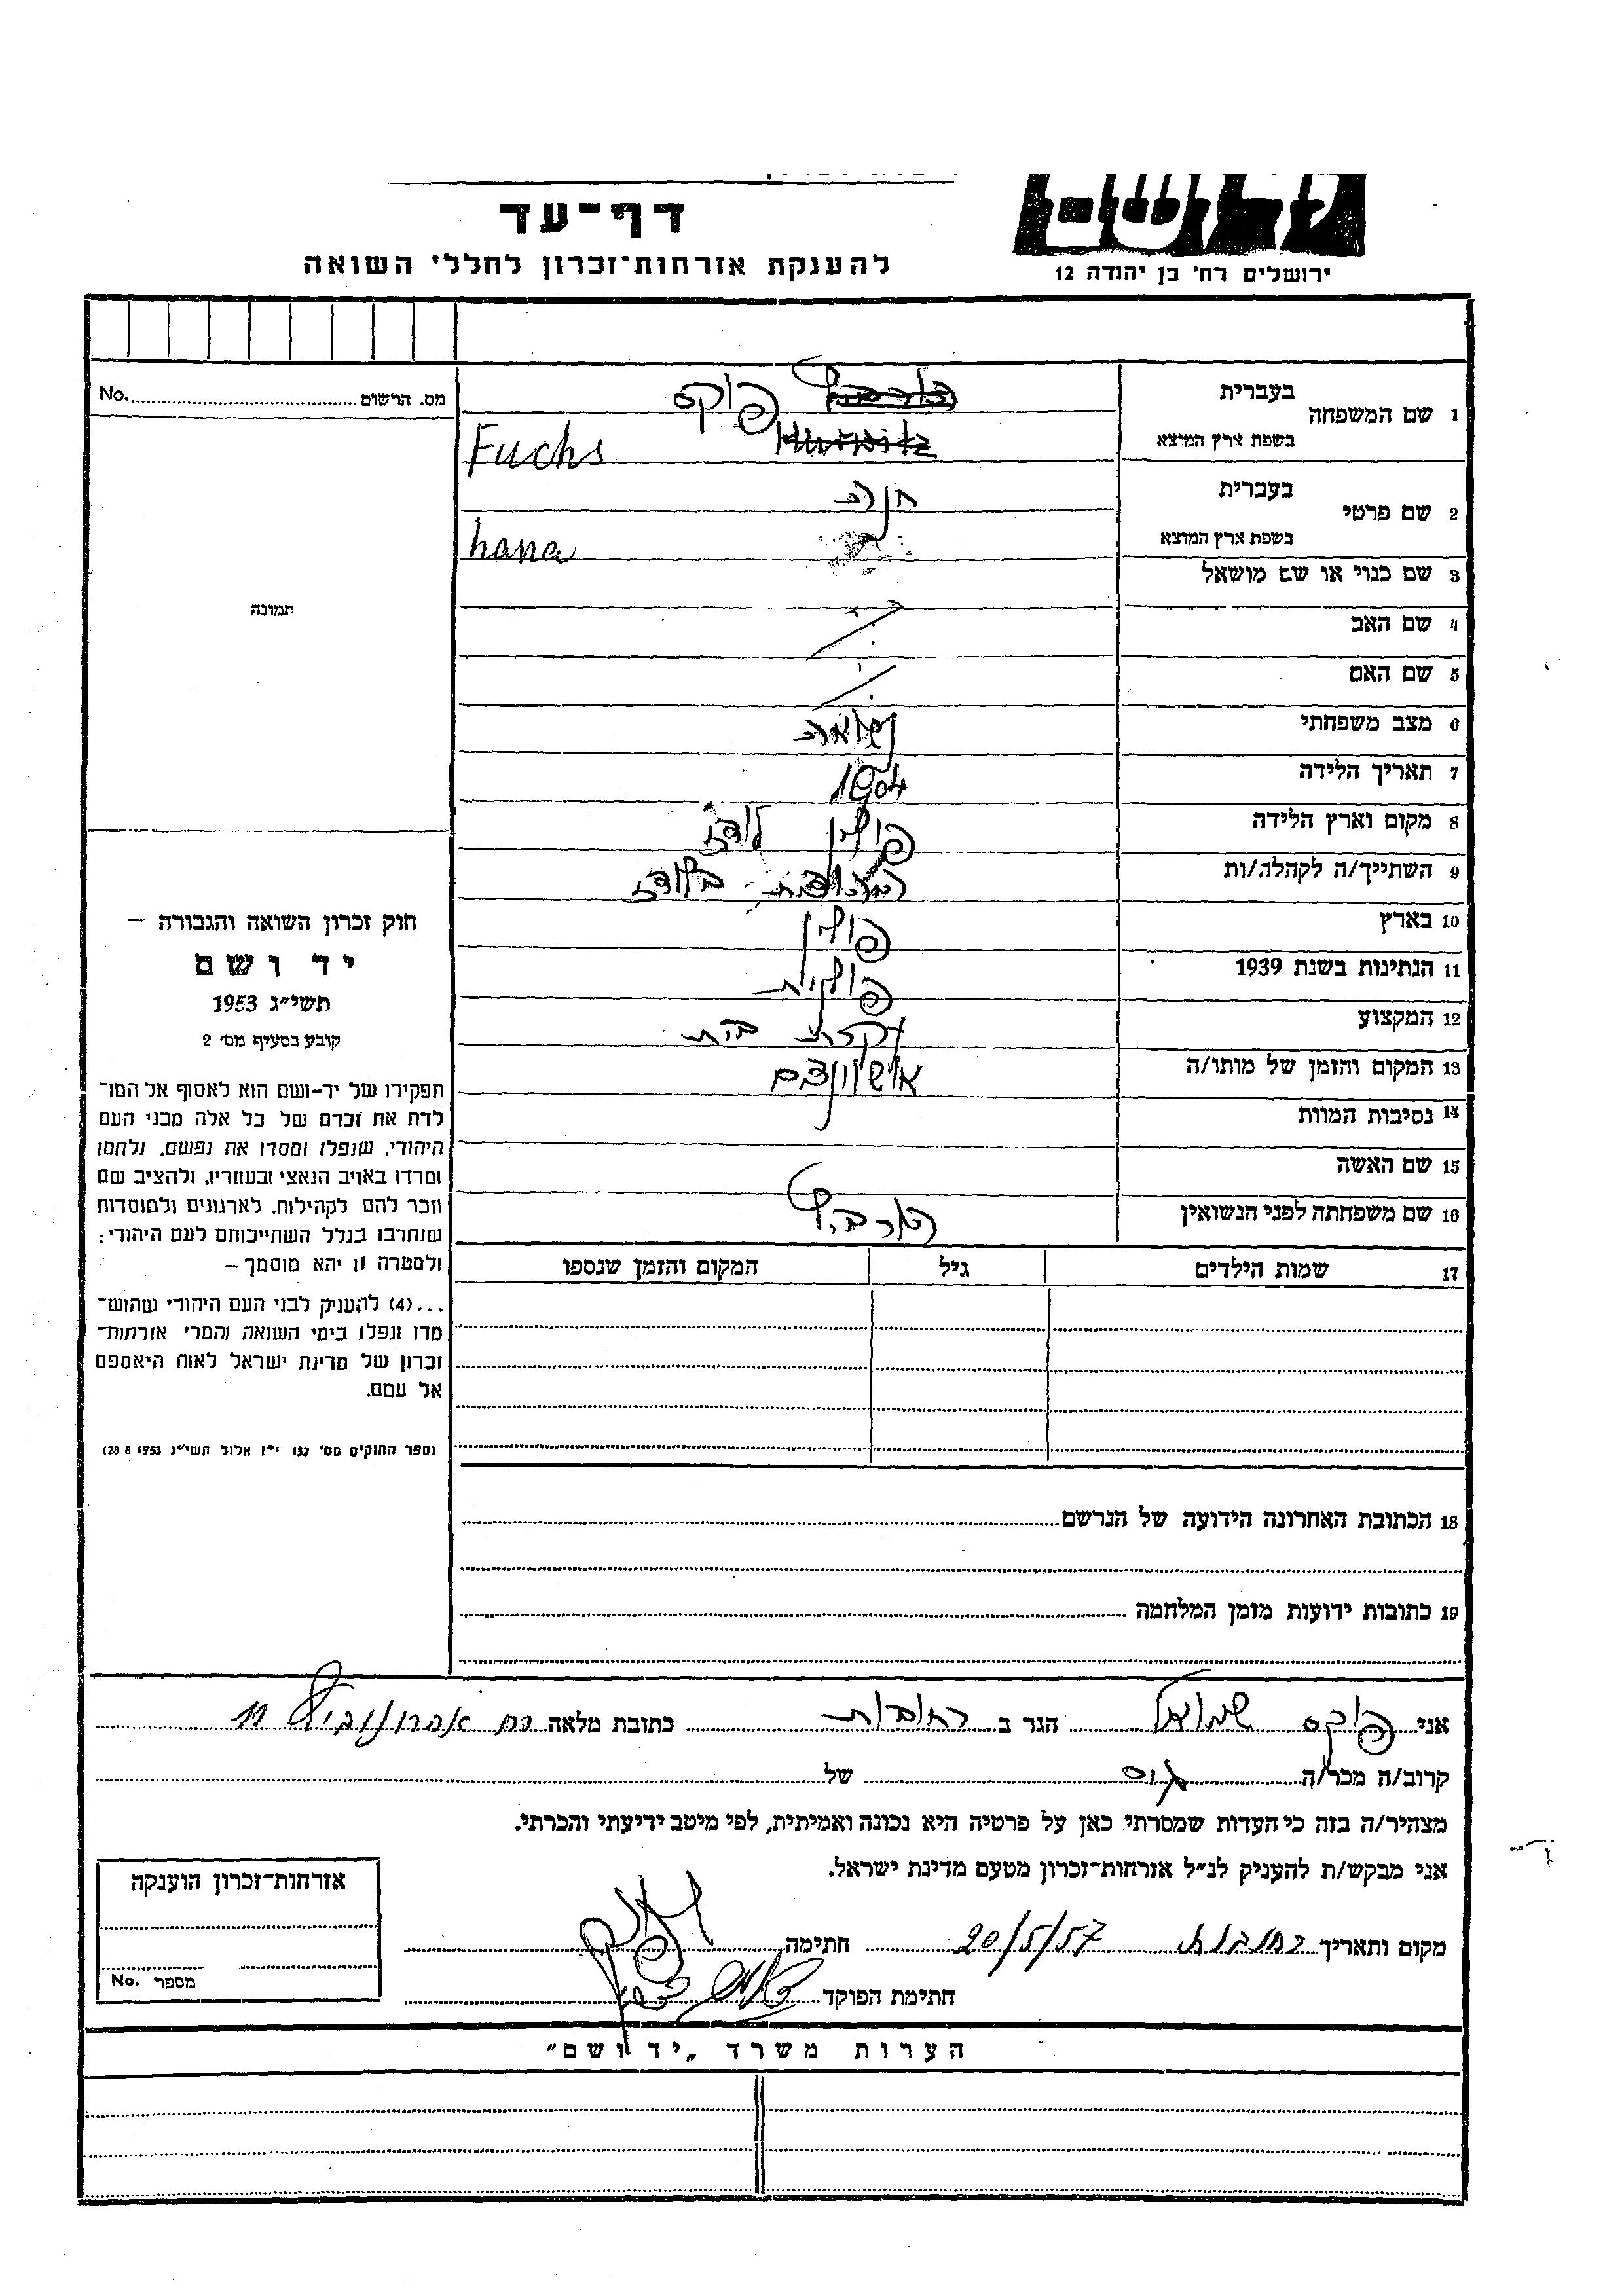 דף-עד
להענקת אזרחות-זכרון לחללי השואה
ירושלים רח' בן יהודה 12
No. מס. הרשום
תמונה
1 שם המשפחה
בעברית
פוקס
בשפת ארץ המוצא
Fuchs
2 שם פרטי
בעברית
חנה
בשפת ארץ המוצא
hana
3 שם כנוי או שם מושאל
4 שם האב
5 שם האם
6 מצב משפחתי נשואה
7 תאריך הלידה 1904
8 מקום וארץ הלידה פולין לודז
9 השתייך/ה לקהלה/ות בלודז
10 בארץ פולין
11 הנתינות בשנת 1939 פולנית
12 המקצוע עקרת בית
13 המקום והזמן של מותו/ה
14 נסיבות המוות
15 שם האשה
16 שם משפחתה לפני הנשואין
17 שמות הילדים גיל המקום והזמן שנספו
חוק זכרון השואה והגבורה –
יד ושם
תשי״ג 1953
קובע בסעיף מס' 2
תפקידו של יד-ושם הוא לאסוף אל המו־
לדת את זכרם של כל אלה מבני העם
היהודי, שנפלו ומסרו את נפשם, נלחמו
ומרדו באויב הנאצי ובעוזריו, ולהציב שם
וזכר להם לקהילות, לארגונים ולמוסדות
שנחרבו בגלל השתייכותם לעם היהודי;
ולמטרה זו יהא מוסמך –
...(4) להעניק לבני העם היהודי שהוש־
מדו ונפלו בימי השואה והמרי אזרחות־
זכרון של מדינת ישראל לאות היאספם
אל עמם.
(ספר החוקים מס' 132 י״ז אלול תשי״ג 28 8 1953)
18 הכתובת האחרונה הידועה של הנרשם
19 כתובות ידועות מזמן המלחמה
אני פוקס שמואל הגר ב רחובות כתובת מלאה רח אהרונוביץ 11
קרוב/ה מכר/ה גיס של
מצהיר/ה בזה כי העדות שמסרתי כאן על פרטיה היא נכונה ואמיתית, לפי מיטב ידיעתי והכרתי.
אני מבקש/ת להעניק לנ״ל אזרחות-זכרון מטעם מדינת ישראל.
מקום ותאריך רחובות 20/5/57 חתימה
חתימת הפוקד
אזרחות-זכרון הוענקה
מספר No.
הערות משרד „יד ושם״